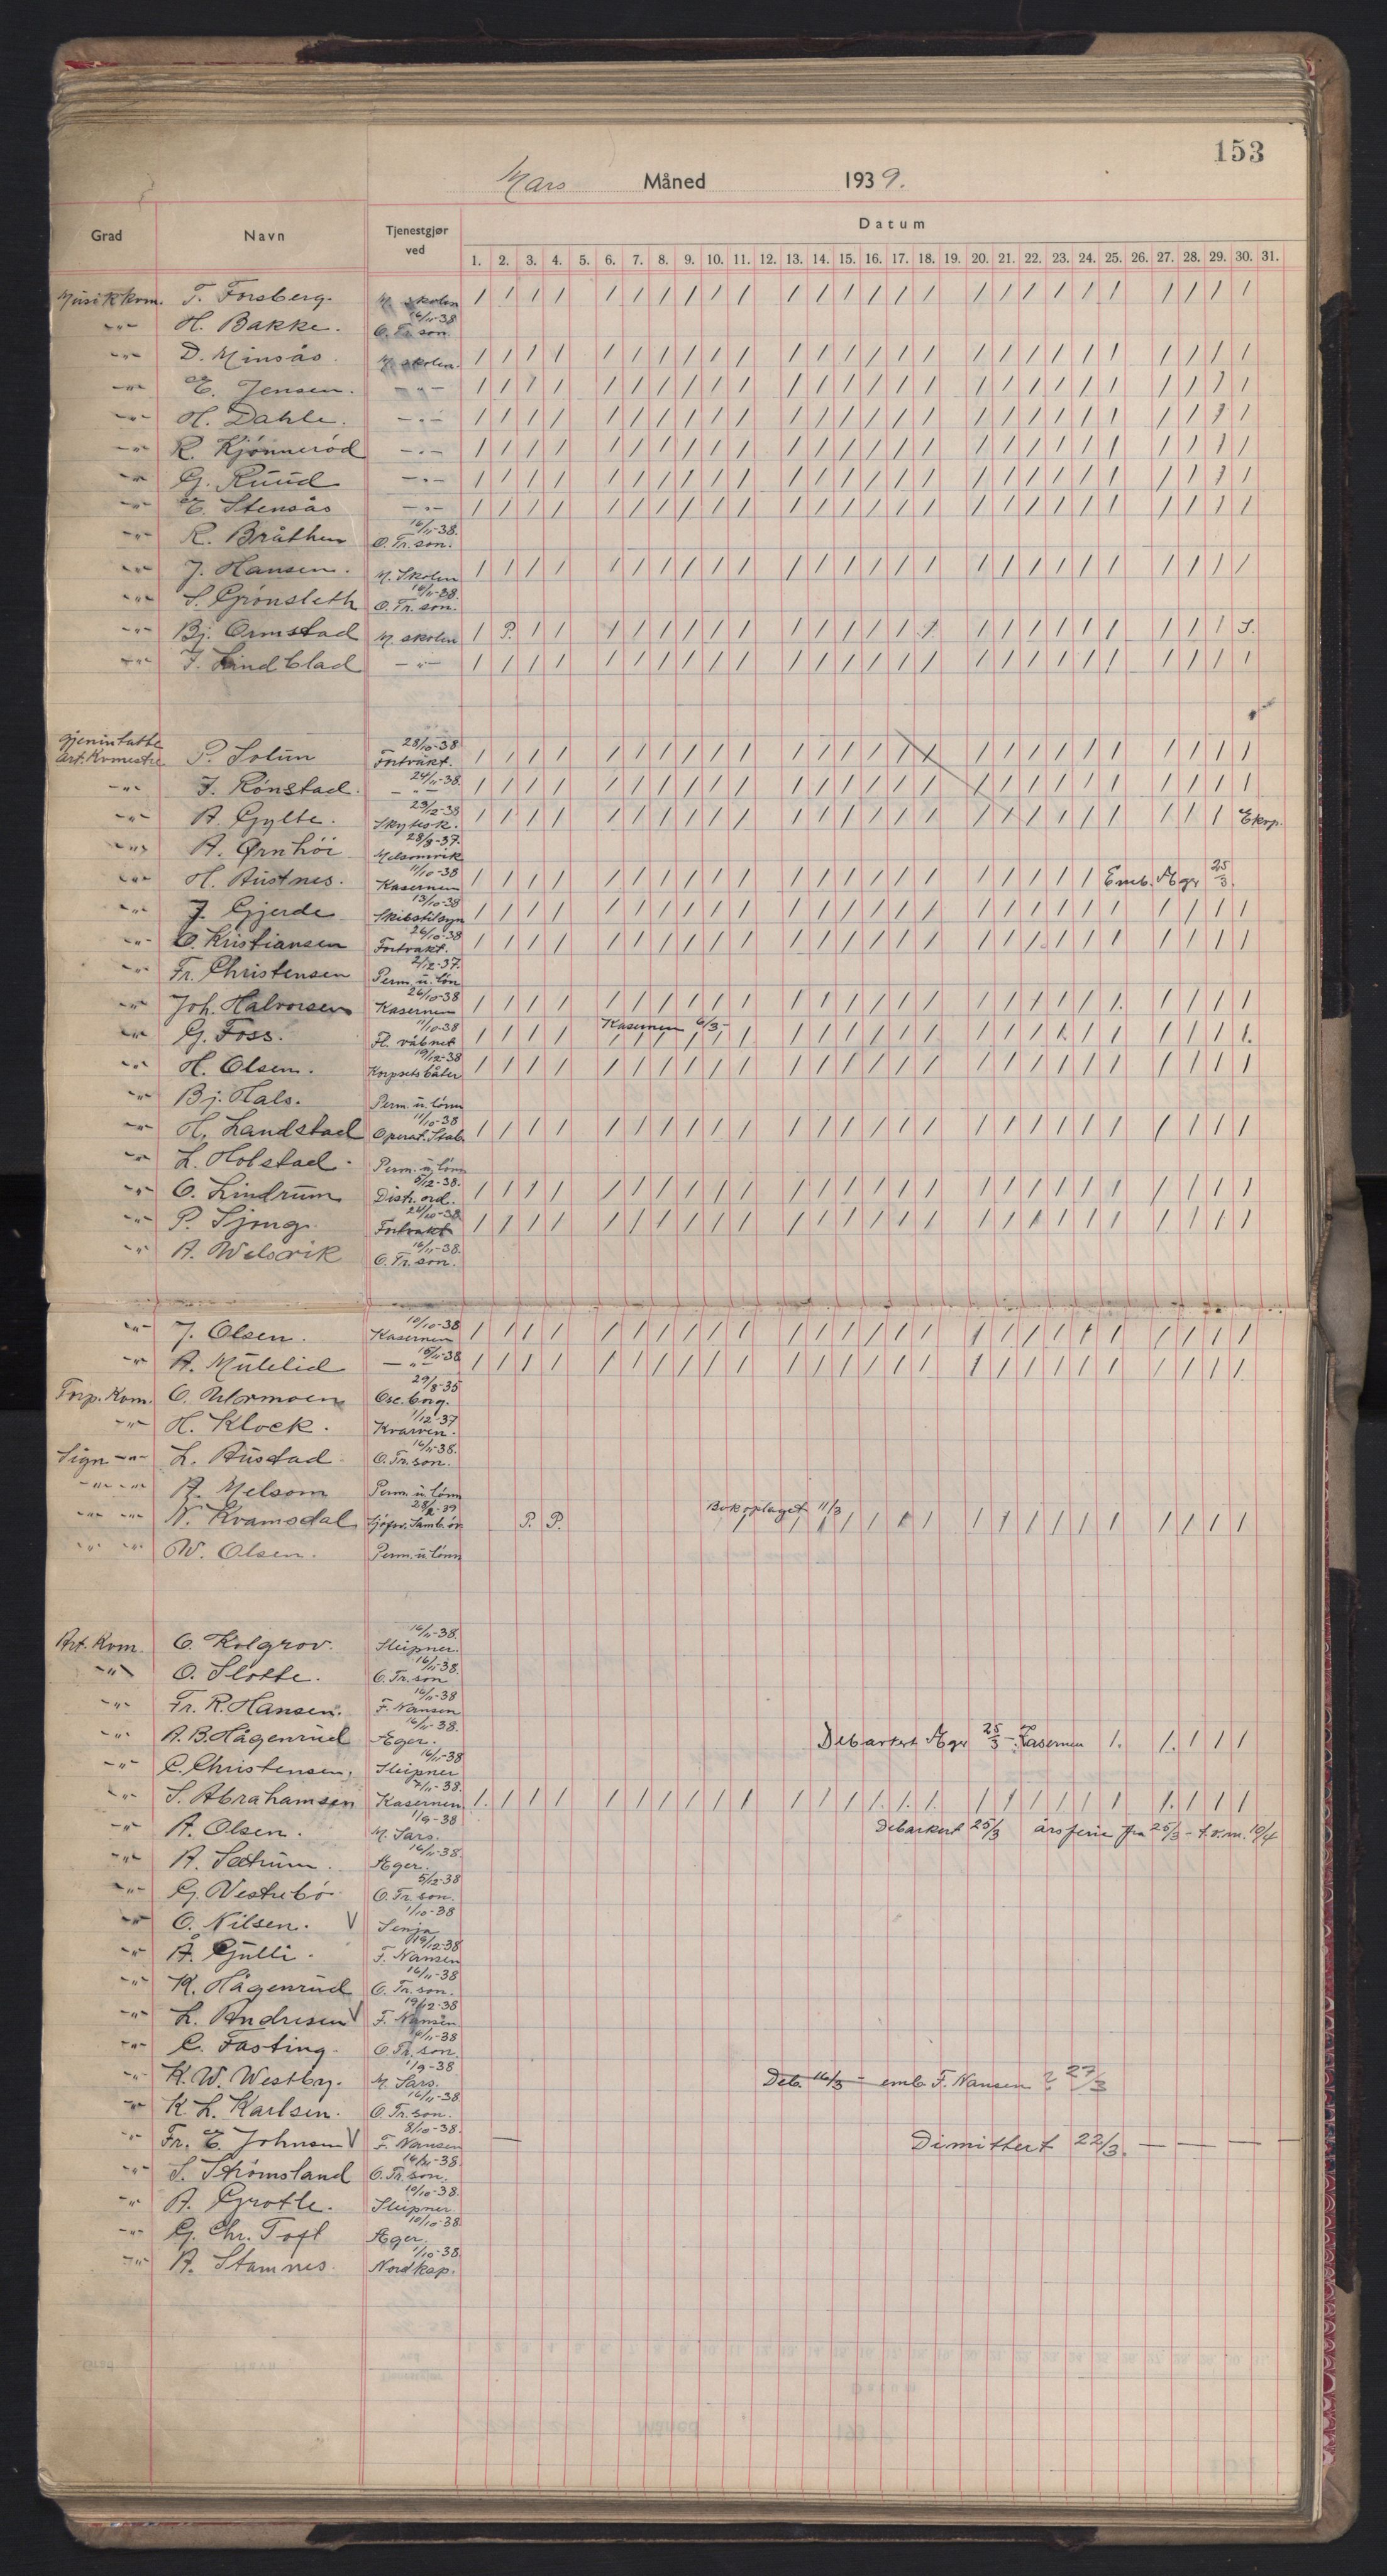 153
Mars Måned 1939.
Grad Navn Tjenestgjør ved Datum
1. 2. 3. 4. 5. 6. 7. 8. 9. 10. 11. 12. 13. 14. 15. 16. 17. 18. 19. 20. 21. 22. 23. 24. 25. 26. 27. 28. 29. 30. 31.
Musikkkom. T. Forsberg. M. skolen / / / / / / / / / / / / / / / / / / / / / / / / / /
-"- H. Bakke. 16/11-38 O. Tr. son.
-"- D. Minsås. M. skolen. / / / / / / / / / / / / / / / / / / / / / / / / / /
-"- E. Jensen. -"- / / / / / / / / / / / / / / / / / / / / / / / / / /
-"- H. Dahle. -"- / / / / / / / / / / / / / / / / / / / / / / / / / /
-"- R. Kjønnerød -"- / / / / / / / / / / / / / / / / / / / / / / / / / /
-"- G. Ruud -"- / / / / / / / / / / / / / / / / / / / / / / / / / /
-"- E. Stensås -"- / / / / / / / / / / / / / / / / / / / / / / / / / /
-"- R. Bråthen 16/11-38. O. Tr. son.
-"- J. Hansen. M. Skolen / / / / / / / / / / / / / / / / / / / / / / / / / /
-"- S. Grønsleth 16/11-38. O. Tr. son.
-"- Bj. Ormstad M. skolen / P. / / / / / / / / / / / / / / / / / / / / / / / S.
-"- J. Lindblad -"- / / / / / / / / / / / / / / / / / / / / / / / / / /
Gjeninntatte
Art. Kvmestre P. Solum 28/10-38 Fortvakt. / / / / / / / / / / / / / / / / / / / / / / / / / /
-"- J. Rønstad. 24/11-38. -"- / / / / / / / / / / / / / / / / / / / / / / / / / /
-"- A. Gylte. 29/12-38 Skytesk. / / / / / / / / / / / / / / / / / / / / / / / / / Eksp.
-"- A. Ørnhöi 28/8-37. Melsomvik
-"- H. Austnes. 11/10-38 Kasernen / / / / / / / / / / / / / / / / / / / / / Emb. Æger 25/3.
-"- J. Gjerde 13/10-38 Skibstilsyn / / / / / / / / / / / / / / / / / / / / / / / / / /
-"- O. Kristiansen 26/10-38 Fortvakt. / / / / / / / / / / / / / / / / / / / / / / / / / /
-"- Fr. Christensen 2/12-37. Perm. u. løn
-"- Joh. Halvorsen 26/10-38 Kasernen / / / / / / / / / / / / / / / / / / / / / / / / / /
-"- G. Foss. 11/10-38 Fl. våbnet / / / / Kasernen 6/3- / / / / / / / / / / / / / / / / / / / / / /
-"- H. Olsen. 19/12-38 Korpsets båter / / / / / / / / / / / / / / / / / / / / / / / / / /
-"- Bj. Hals. Perm. u. lønn
-"- H. Landstad 11/10-38 Operat. Stab. / / / / / / / / / / / / / / / / / / / / / / / / / /
-"- L. Holstad. Perm. u. lønn
-"- O. Lindrum 5/12-38. Distr. ord. / / / / / / / / / / / / / / / / / / / / / / / / / /
-"- P. Sjong. 24/10-38 Fortvakt / / / / / / / / / / / / / / / / / / / / / / / / / /
-"- A. Welsvik 16/11-38. O. Tr. son.
-"- J. Olsen. 10/10-38 Kasernen / / / / / / / / / / / / / / / / / / / / / / / / / /
-"- A. Mulelid 15/11-38 -"- / / / / / / / / / / / / / / / / / / / / / / / / / /
Torp. Kom. O. Ulormoen 29/8-35 Osc. borg.
-"- H. Klock. 1/12-37 Kvarven.
Sign -"- L. Austad 16/11-38. O. Tr. son.
-"- -"- A. Melsom Perm. u. lønn
-"- -"- N. Kvamsdal 28/2-39 Sjøfsv. Samb. øv. P. P. Bokoplaget 11/3 / / / / / / / / / / / / / / / / /
-"- -"- W. Olsen. Perm. u. lønn
Art. Kom. O. Kolgrov. 16/11-38. Sleipner.
-"- O. Slotte. 16/11-38. O. Tr. son
-"- Fr. R. Hansen. 16/11-38 F. Nansen
-"- A. B. Hågenrud 16/11-38. Æger. Debarkert Æger 25/3-. Kasernen /. /. / / /
-"- C. Christensen, 16/11-38 Sleipner
-"- S. Abrahamsen 7/11-38. Kasernen. / / / / / / / / / / / / / / / / / / / / / / / / / /
-"- A. Olsen. 1/9-38 M. Sars. Debarkert 25/3 årsferie fra 25/3 - t.o.m. 10/4
-"- A. Sætrum. 16/11-38. Æger.
-"- G. Vestrebö 5/12-38 O. Tr. son.
-"- O. Nilsen. V 1/10-38 Senja
-"- Å. Gjulli. 19/12-38 F. Nansen
-"- K. Hågenrud 16/11-38 O. Tr. son.
-"- L. Andresen V 19/12-38 F. Nansen.
-"- C. Fasting. 9/11-38 O. Tr. son.
-"- K. W. Westby. 1/9-38 M. Sars. Deb. 16/3 - emb. F. Nansen ? 27/3
-"- K. L. Karlsen. 16/11-38. O. Tr. son.
-"- Fr. E. Johnsen V 8/10-38. F. Nansen — Dimittert 22/3. — — — —
-"- S. Strømsland 16/11-38. O. Tr. son.
-"- A. Grotle. 10/10-38. Sleipner.
-"- G. Chr. Toft 10/10-38. Æger.
-"- A. Stamnes. 1/10-38. Nordkap.